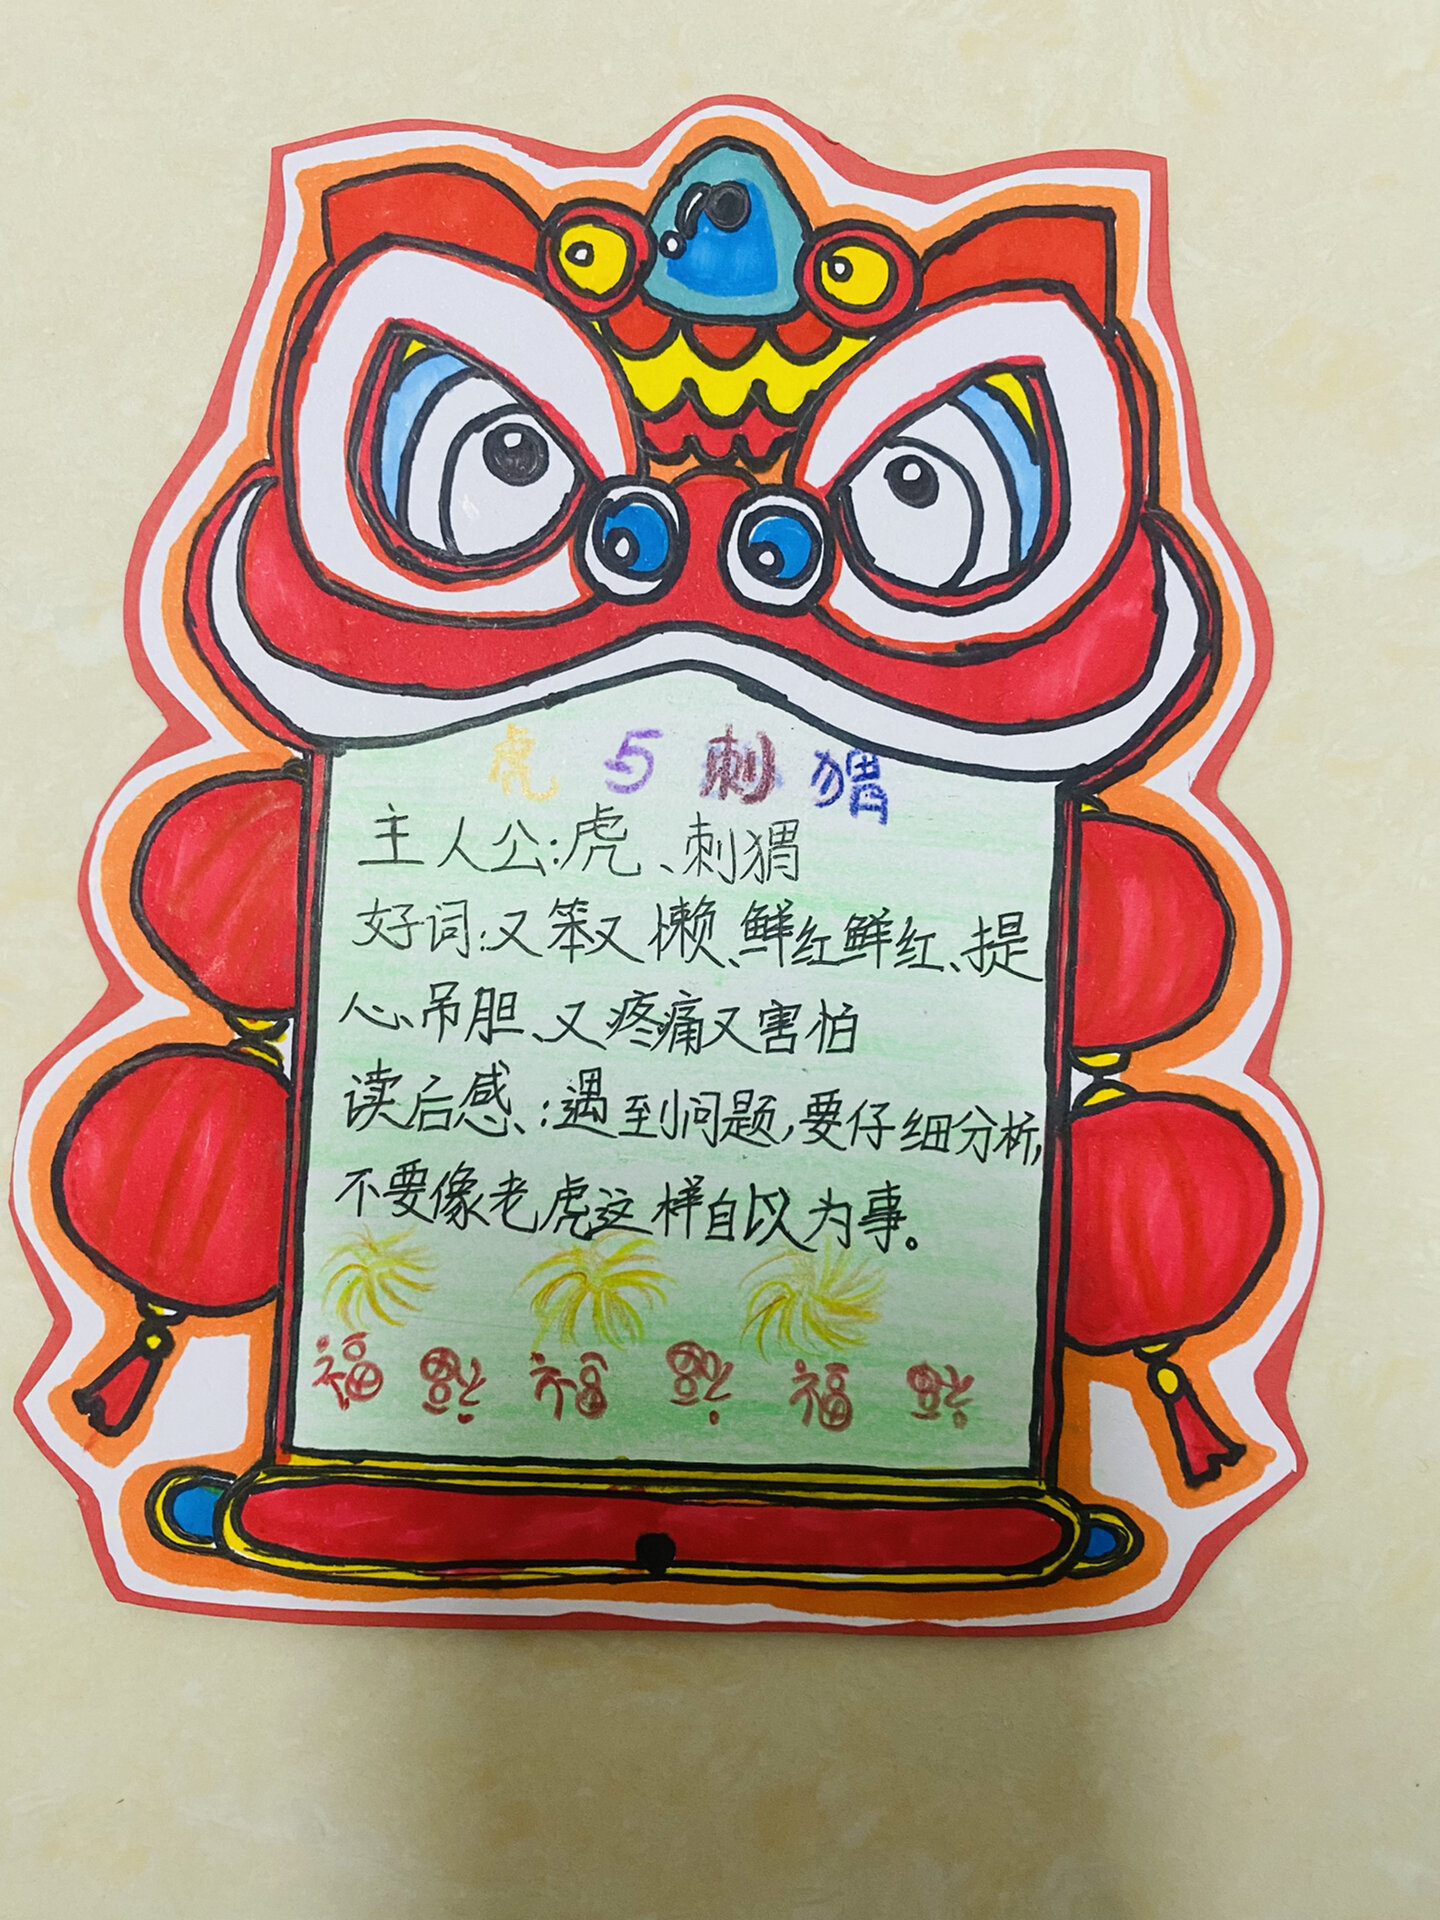 虎与刺猬
主人公:虎、刺猬
好词:又笨又懒、鲜红鲜红、提
心吊胆、又疼痛又害怕
读后感:遇到问题,要仔细分析,
不要像老虎这样自以为事。
福福福福福福